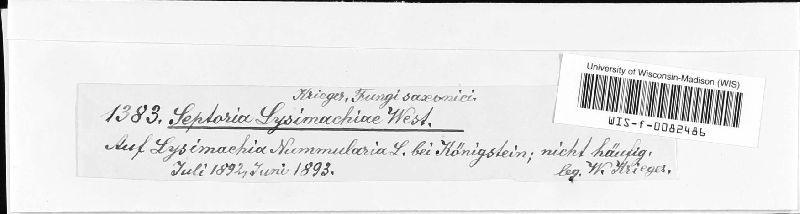 Krieger, Fungi saxonici.
1383. Septoria Lysimachiae West.
Auf Lysimachia Nummularia L. bei Königstein; nicht häufig.
Juli 1892, Juni 1893.
leg. W. Krieger.
University of Wisconsin-Madison (WIS)
WIS-f-0082486